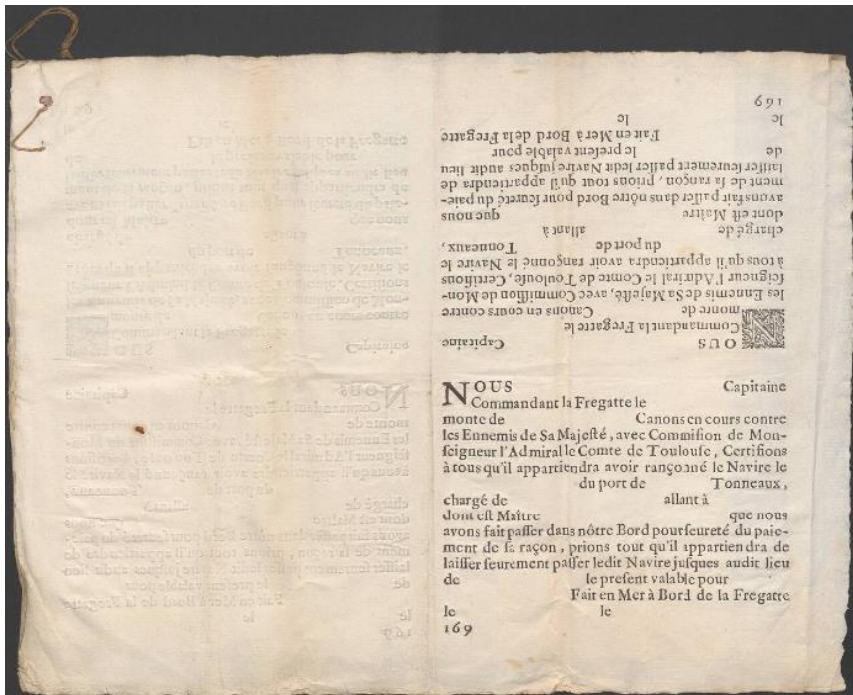 NOUS Capitaine
Commandant la Fregatte le
monte de Canons en cours contre
les Ennemis de Sa Majeſté, avec Commiſſion de Mon-
ſeigneur l'Admiral le Comte de Toulouſe, Certifions
à tous qu'il appartiendra avoir rançonné le Navire le
du port de Tonneaux,
chargé de allant à
dont eſt Maître que nous
avons fait paſſer dans nôtre Bord pour ſeureté du paie-
ment de ſa rançon, prions tout qu'il appartiendra de
laiſſer ſeurement paſſer ledit Navire juſques audit lieu
de le preſent valable pour
Fait en Mer à Bord de la Fregatte
le le
169
NOUS Capitaine
Commandant la Fregatte le
monte de Canons en cours contre
les Ennemis de Sa Majeſté, avec Commiſion de Mon-
ſeigneur l'Admiral le Comte de Toulouſe, Certifions
à tous qu'il appartiendra avoir rançonné le Navire le
du port de Tonneaux,
chargé de allant à
dont eſt Maître que nous
avons fait paſſer dans nôtre Bord pour ſeureté du paie-
ment de ſa raçon, prions tout qu'il appartiendra de
laiſſer ſeurement paſſer ledit Navire juſques audit lieu
de le preſent valable pour
Fait en Mer à Bord de la Fregatte
le le
169